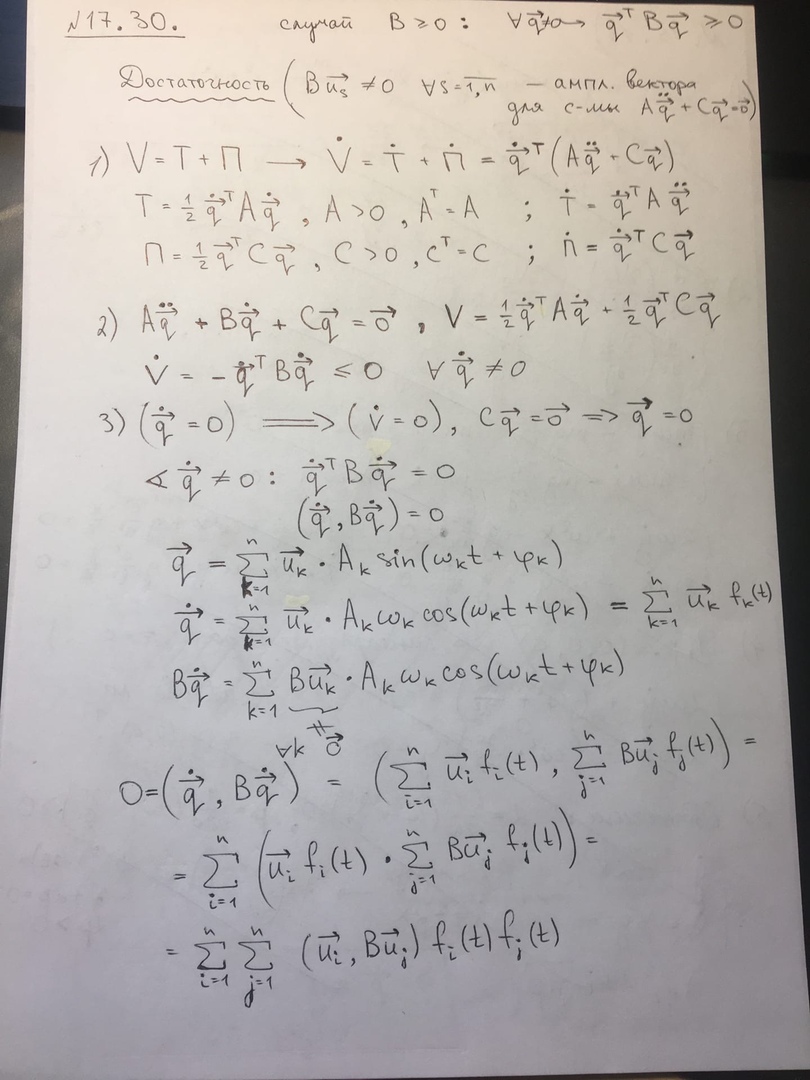 №17.30. случай B ≥ 0 : ∀q⃗≠0 → q⃗ᵀ B q⃗ ≥ 0
Достаточность ( B u⃗ₛ ≠ 0 ∀s = 1,n̅ — ампл. вектора
для с-мы A q⃗̈ + C q⃗ = 0⃗ )
1) V = T + П → V̇ = Ṫ + П̇ = q⃗̇ᵀ (A q⃗̈ + C q⃗)
T = ½ q⃗̇ᵀ A q⃗̇ , A > 0 , Aᵀ = A ; Ṫ = q⃗̇ᵀ A q⃗̈
П = ½ q⃗ᵀ C q⃗ , C > 0 , Cᵀ = C ; П̇ = q⃗̇ᵀ C q⃗
2) A q⃗̈ + B q⃗̇ + C q⃗ = 0⃗ , V = ½ q⃗̇ᵀ A q⃗̇ + ½ q⃗ᵀ C q⃗
V̇ = − q⃗̇ᵀ B q⃗̇ ≤ 0 ∀ q⃗̇ ≠ 0
3) (q⃗̇ = 0) ⟹ (V̇ = 0) , C q⃗ = 0⃗ ⇒ q⃗ = 0
∢ q⃗̇ ≠ 0 : q⃗̇ᵀ B q⃗̇ = 0
(q⃗̇ , B q⃗̇) = 0
q⃗ = ∑ₖ₌₁ⁿ u⃗ₖ · Aₖ sin(ωₖt + φₖ)
q⃗̇ = ∑ₖ₌₁ⁿ u⃗ₖ · Aₖ ωₖ cos(ωₖt + φₖ) = ∑ₖ₌₁ⁿ u⃗ₖ fₖ(t)
B q⃗̇ = ∑ₖ₌₁ⁿ B u⃗ₖ · Aₖ ωₖ cos(ωₖt + φₖ)
∀k ≠ 0⃗
0 = (q⃗̇ , B q⃗̇) = ( ∑ᵢ₌₁ⁿ u⃗ᵢ fᵢ(t) , ∑ⱼ₌₁ⁿ B u⃗ⱼ fⱼ(t) ) =
= ∑ᵢ₌₁ⁿ ( u⃗ᵢ fᵢ(t) · ∑ⱼ₌₁ⁿ B u⃗ⱼ fⱼ(t) ) =
= ∑ᵢ₌₁ⁿ ∑ⱼ₌₁ⁿ (u⃗ᵢ , B u⃗ⱼ) fᵢ(t) fⱼ(t)